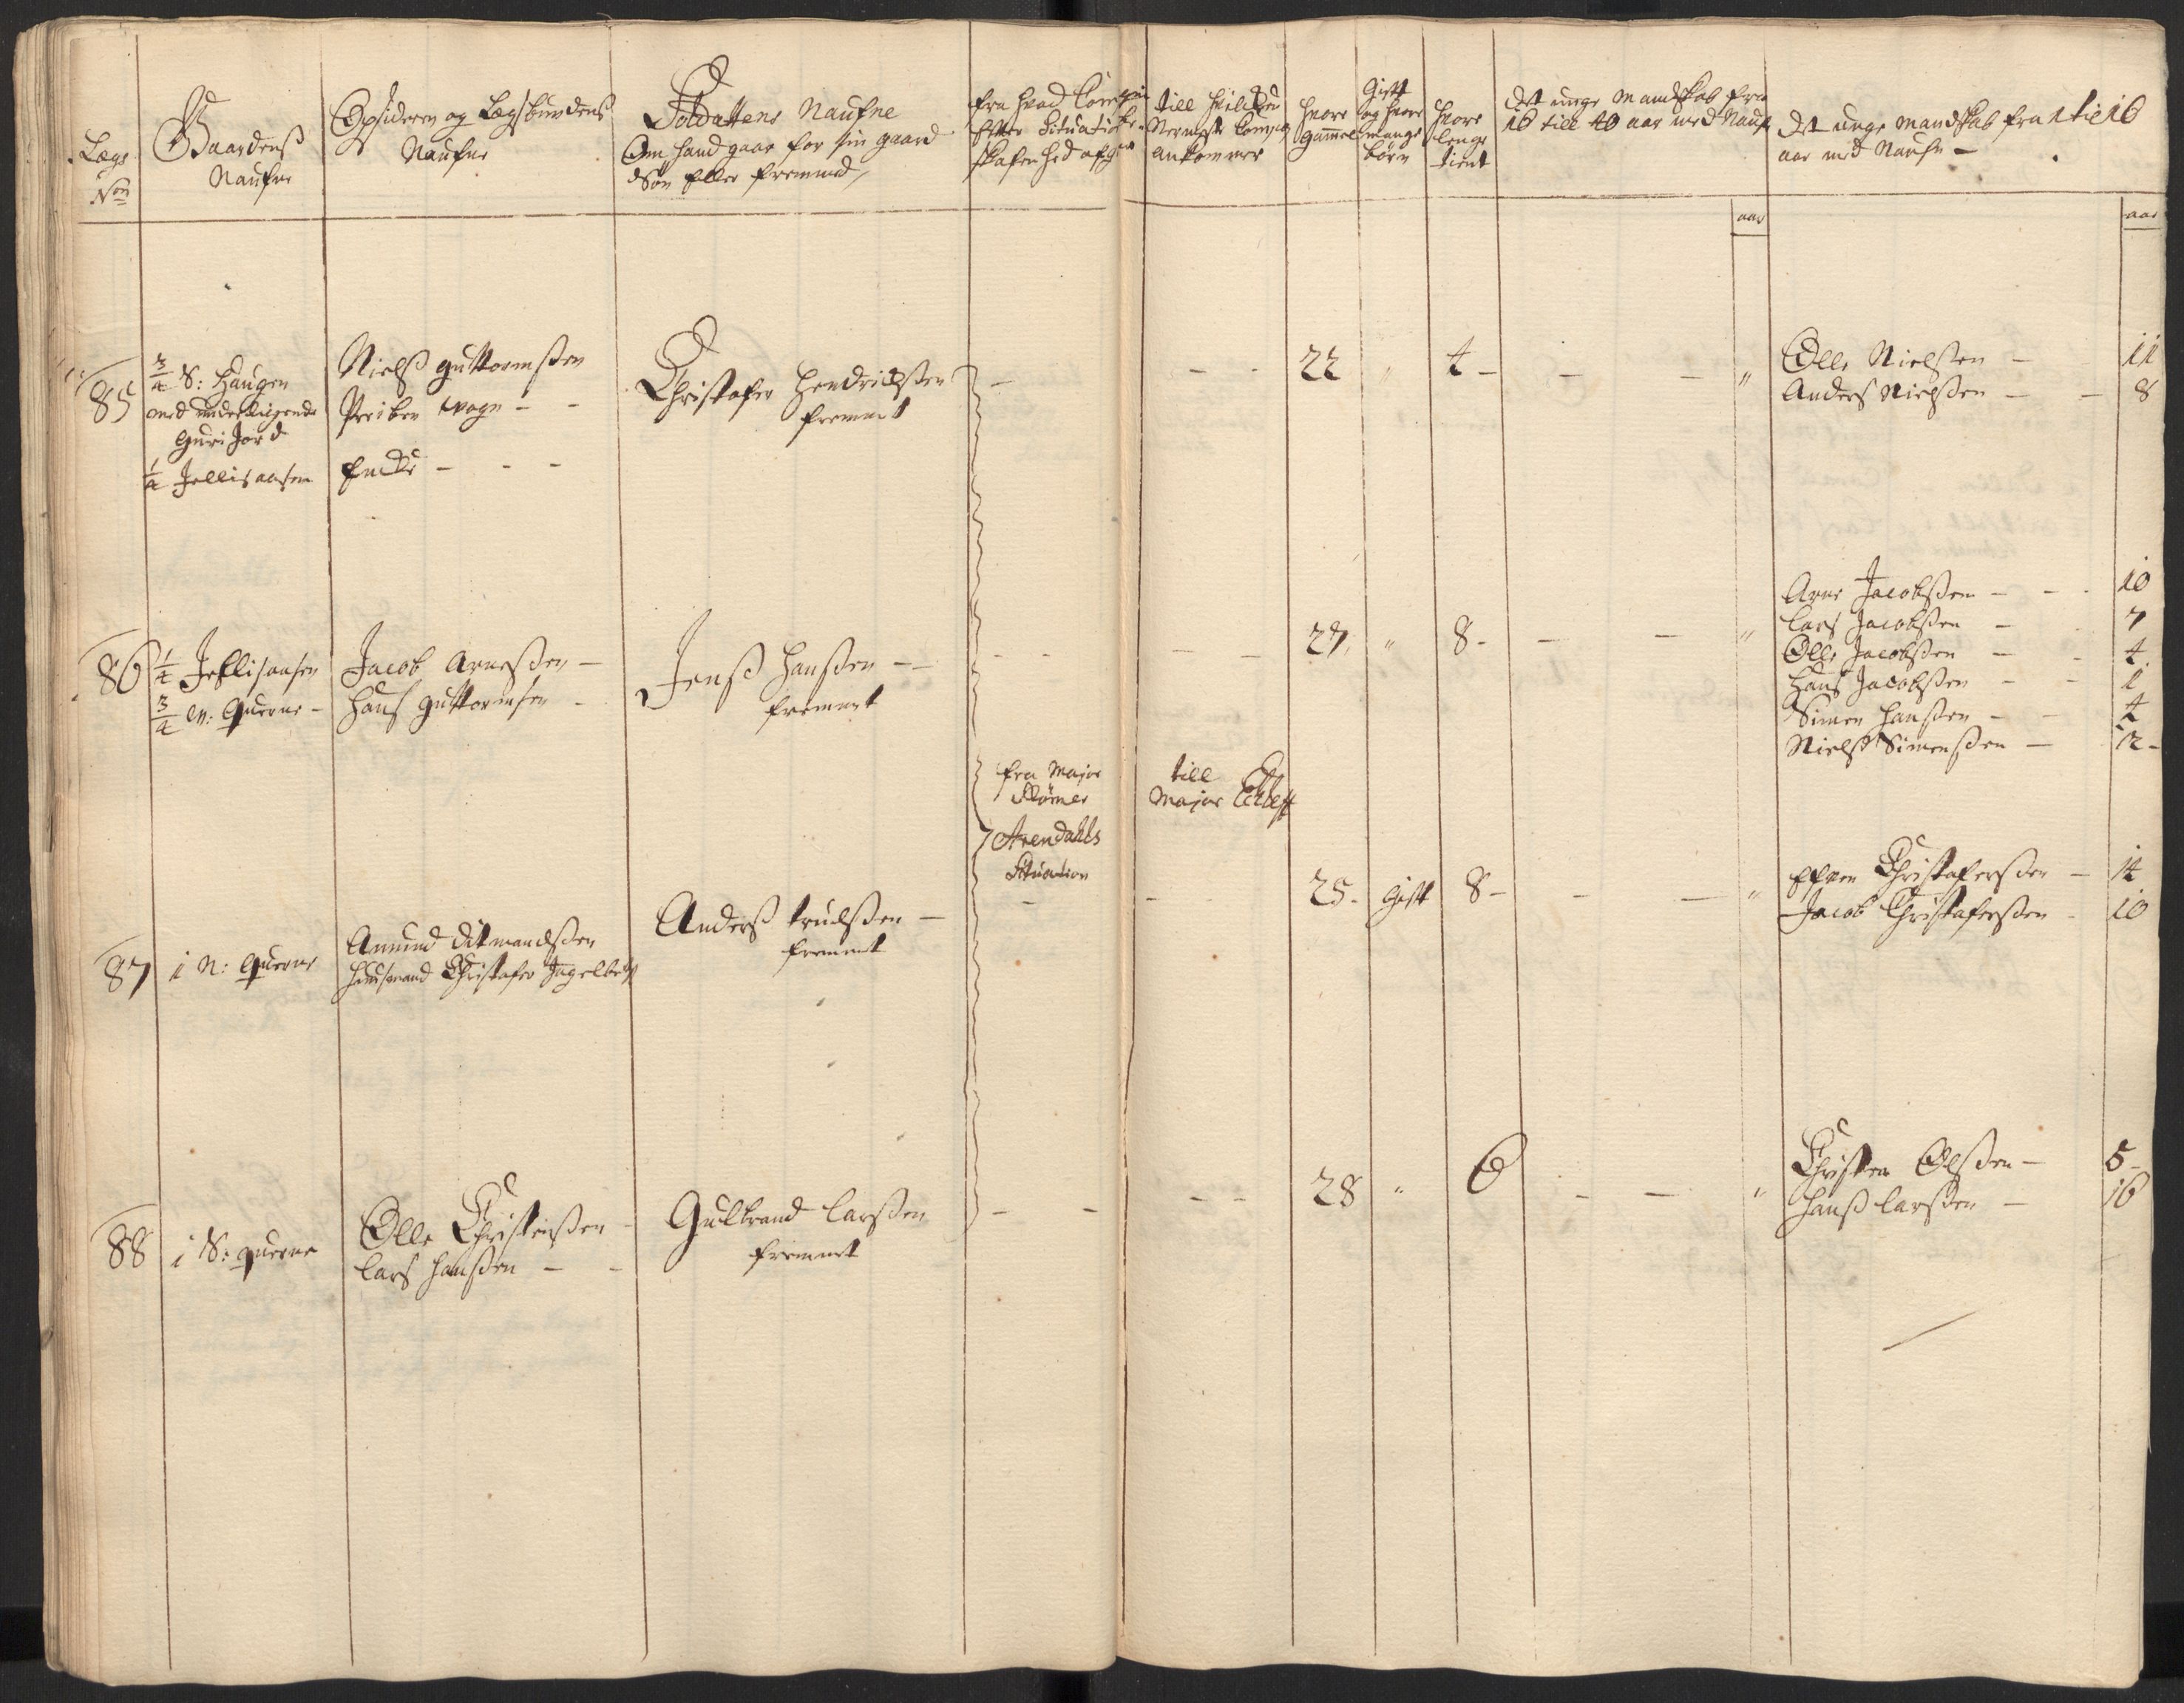 Lægs
No
Gaardens
Naufne
Opsidern og Lægsbundens
Naufne
Soldattens Naufne
Om hand gaar for sin gaard
Søn Eller fremmed
fra hvad Compani
Efter Situations be-
skafenhed afgaar
till hvilcken
Nermeste Compag
ankommer
hvor
gammel
Gift
og hvor
mange
børn
hvor
lenge
tient
det unge Mandskab fra
16 till 40 aar med Naufn
det unge mandskab fra 1 til 16
aar med Naufn —
aar
aar
85
3/4 S: Haugen
med underliigende
Guri Jord
1/4 Jellisaasen
Nielß Guttormßen
Preiben Wogn - -
Encke - - -
Christofer Hendrichßen
fremmet
22 " 4 - - - "
Olle Nielßen - 11
Anders Nielßen - - 8
86
1/4 Jellisaasen
3/4 N: Querne -
Jacob Arneßen -
Hans Guttormsen -
Jenß Hanßen -
fremmet
27 " 8 - - - "
Arne Jacobßen - - 10
Lars Jacobßen - 7
Olle Jacobßen - - 4
Hans Jacobßen - - 1
Simen Hanßen - - 4
Nielß Simenßen - 12 -
fra Major
Kørner
Arendahls
Situation
till
Major
87
1 N: Querne
Amund Ditmandßen
Huusmand Christofer Ingelbretß
Anderß Trulßen -
fremmet
25 - gift 8 - - - "
Efven Christoferßen - 14
Jacob Christoferßen - 10
88
1 S: Querne
Olle Christenßen -
Lars Hanßen - -
Gulbrand Larßen
fremmet
28 " 6 - - "
Christen Olßen - 5 -
Hanß Larßen - 16